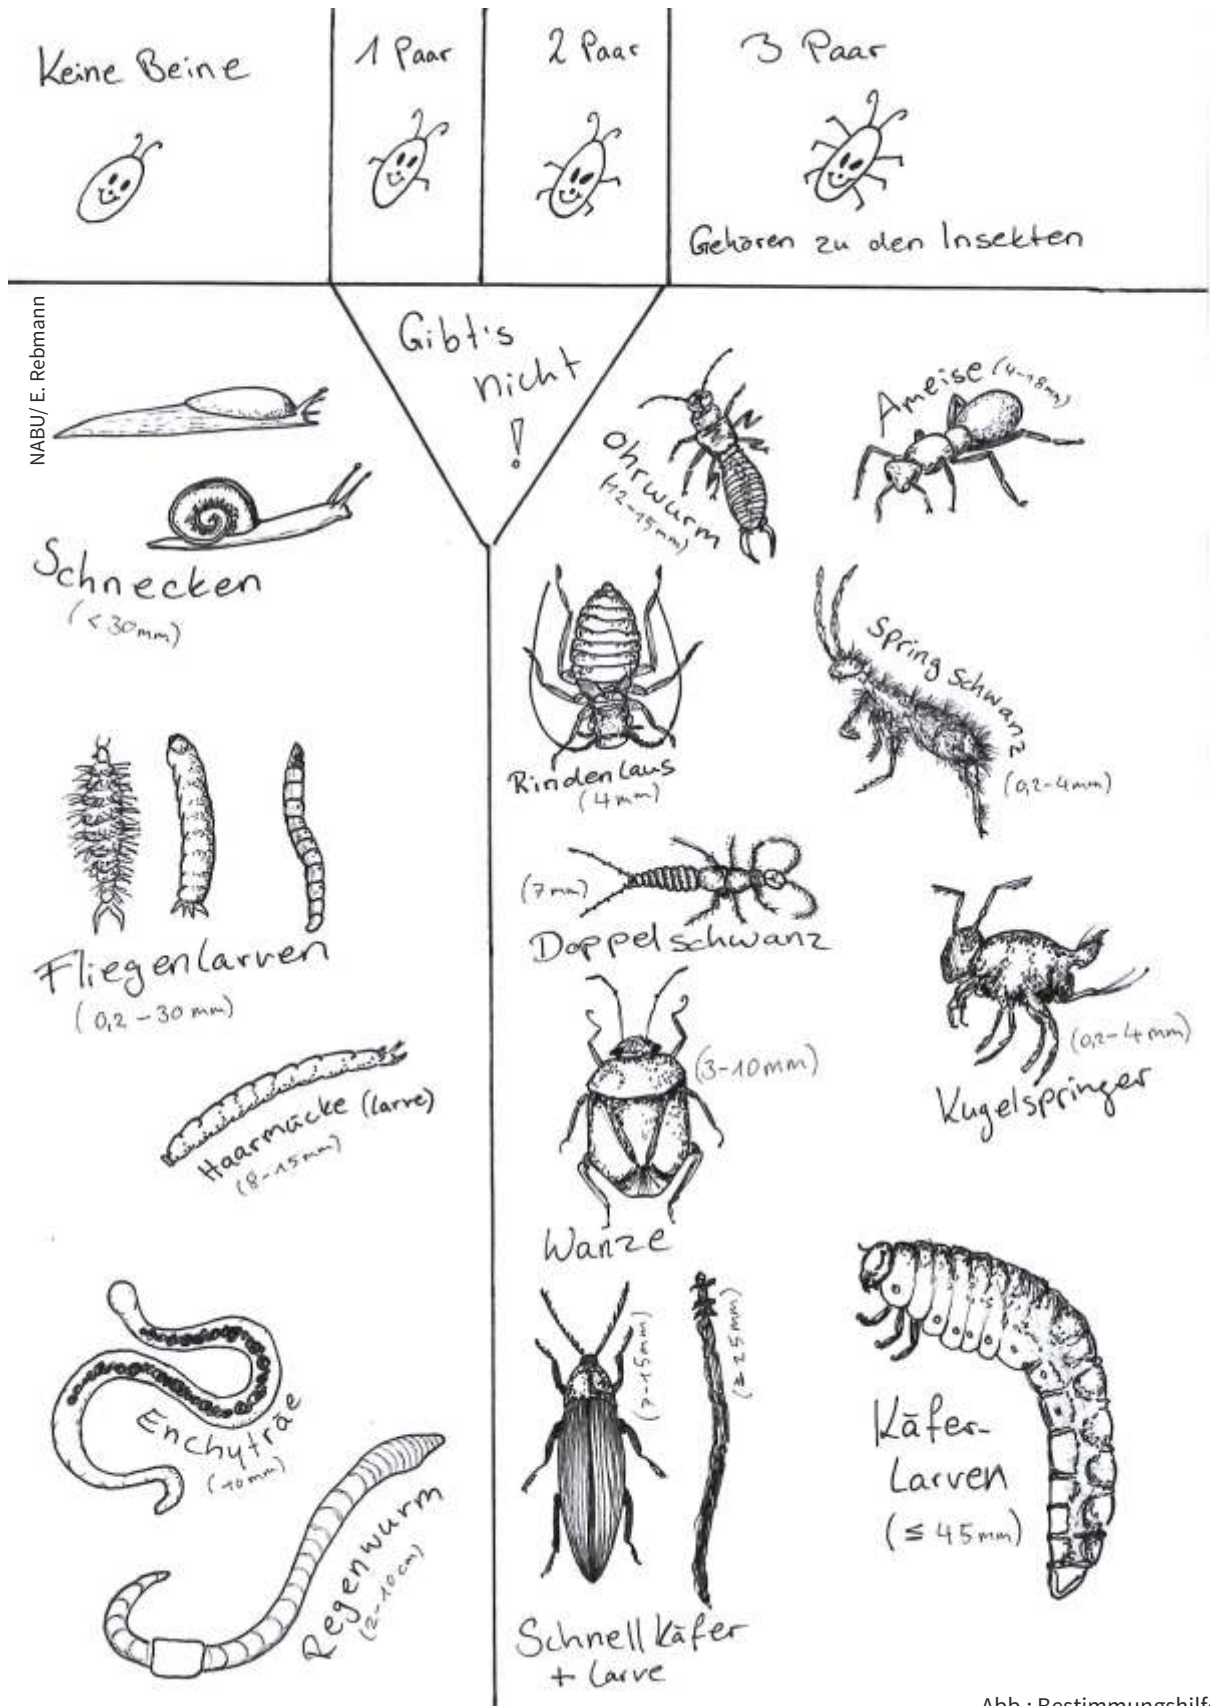 Keine Beine
1 Paar
2 Paar
3 Paar
Gehören zu den Insekten
NABU/ E. Rebmann
Gibt's
nicht
!
Schnecken
(<30mm)
Fliegenlarven
(0,2-30mm)
Haarmücke (larve)
(8-15mm)
Enchyträe
(10mm)
Regenwurm
(2-10cm)
Ohrwurm
(12-15mm)
Ameise (4-18mm)
Rindenlaus
(4mm)
Springschwanz
(0,2-4mm)
(7mm)
Doppelschwanz
(0,2-4mm)
Kugelspringer
(3-10mm)
Wanze
(7-15mm)
Schnellkäfer
+ Larve
Käfer-
Larven
(≤ 45mm)